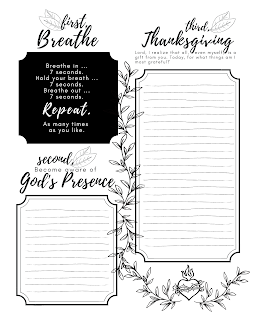 first,
Breathe
Breathe in ...
7 seconds.
Hold your breath ...
7 seconds.
Breathe out ...
7 seconds.
Repeat.
As many times
as you like.
second,
Become aware of
God's Presence
third,
Thanksgiving
Lord, I realize that all, even myself, is a
gift from you. Today, for what things am I
most grateful?